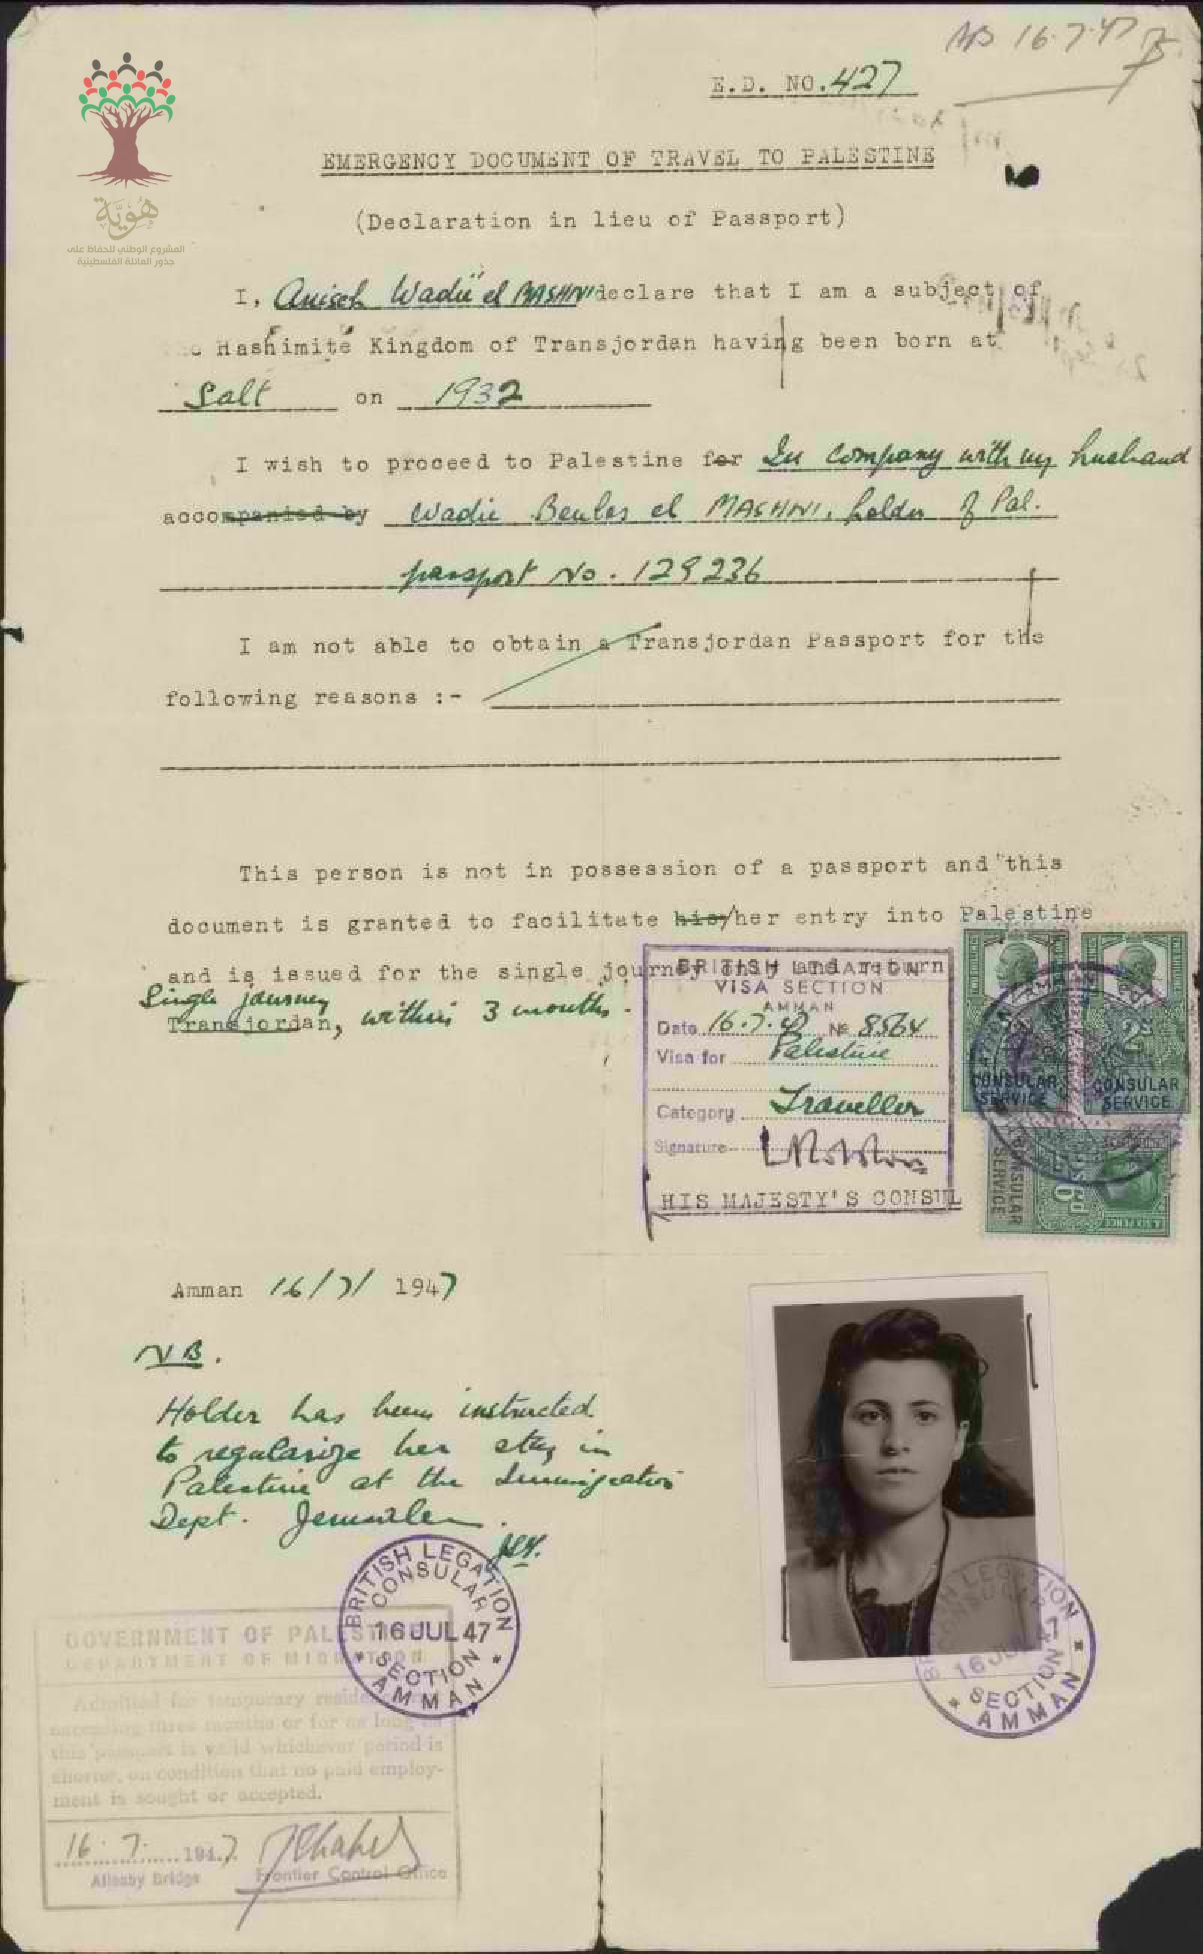 AB 16.7.47
E.D. NO. 427
EMERGENCY DOCUMENT OF TRAVEL TO PALESTINE
(Declaration in lieu of Passport)
هُوِيَّة
المشروع الوطني للحفاظ على
جذور العائلة الفلسطينية
I, Aniseh Wadii el MASHNI declare that I am a subject of
Hashimite Kingdom of Transjordan having been born at
Salt on 1932
I wish to proceed to Palestine for In company with my husband
accompanied by Wadie el MASHNI, holder of Pal.
passport No. 129236
I am not able to obtain a Transjordan Passport for the
following reasons :-
This person is not in possession of a passport and this
document is granted to facilitate his/her entry into Palestine
and is issued for the single journey only and return
Single journey
Transjordan, within 3 months.
BRITISH LEGATION
VISA SECTION
AMMAN
Date 16.7.47 № 8564
Visa for Palestine
Category Traveller
Signature
HIS MAJESTY'S CONSUL
2S
CONSULAR SERVICE
CONSULAR SERVICE
CONSULAR SERVICE
6D
Amman 16/7/1947
NB.
Holder has been instructed
to regularize her stay in
Palestine at the Immigration
Dept. Jerusalem.
BRITISH LEGATION
CONSULAR
16 JUL 47
SECTION
AMMAN
BRITISH LEGATION
CONSULAR
16 JUL 47
SECTION
AMMAN
GOVERNMENT OF PALESTINE
DEPARTMENT OF MIGRATION
Admitted for temporary residence
exceeding three months or for as long as
this passport is valid whichever period is
shorter, on condition that no paid employ-
ment is sought or accepted.
16.7.1947
Allenby Bridge Frontier Control Office